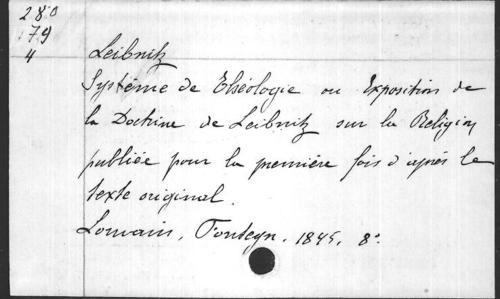 280
179
4
Leibnitz
Système de Théologie ou Exposition de
la Doctrine de Leibnitz sur la Religion
publiée pour la première fois d'après le
texte original.
Louvain, Fonteyn. 1845. 8°